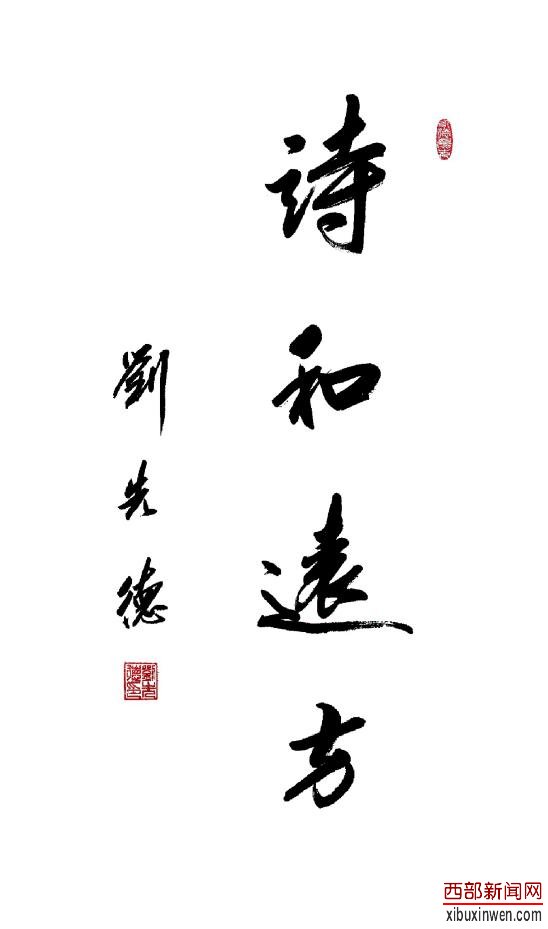 詩和遠方
劉先德
西部新闻网
xibuxinwen.com